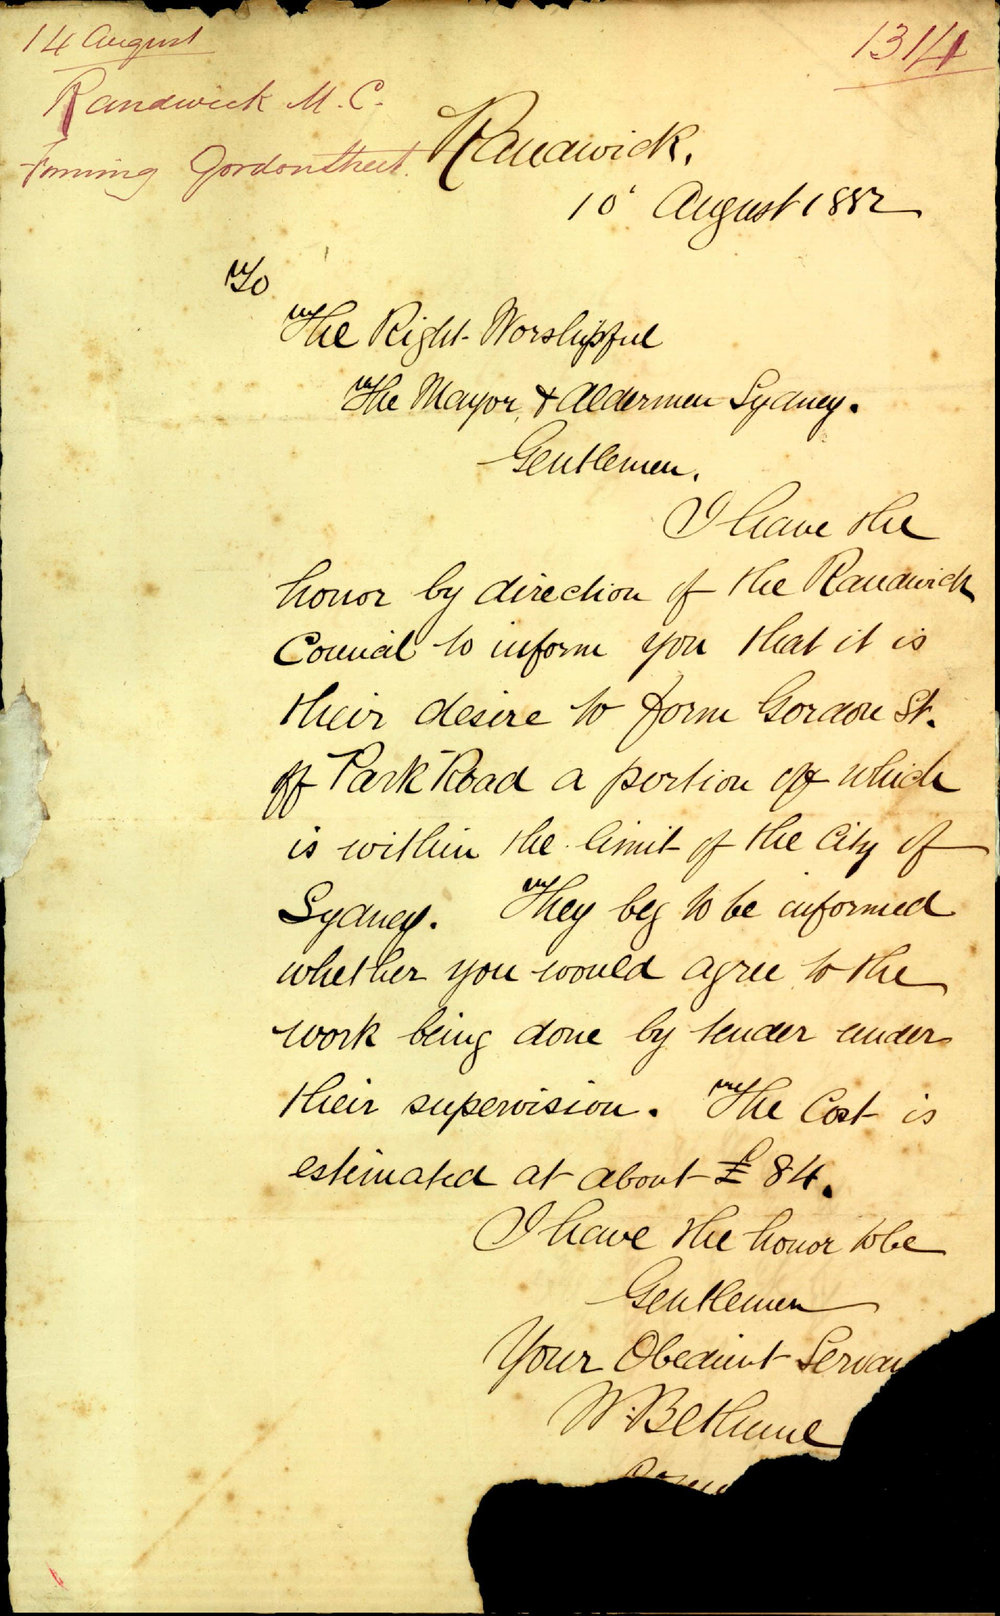 14 August
1314
Randwick M. C.
Forming Gordon Street.
Randwick,
10 August 1882
To
The Right Worshipful
The Mayor, & Aldermen Sydney.
Gentlemen.
I have the
honor by direction of the Randwick
Council to inform you that it is
their desire to form Gordon St.
off Park Road a portion of which
is within the limit of the City of
Sydney. They beg to be informed
whether you would agree to the
work being done by tender under
their supervision. The Cost is
estimated at about £84.
I have the honor to be
Gentlemen
Your Obedient Servan
W. Bethune